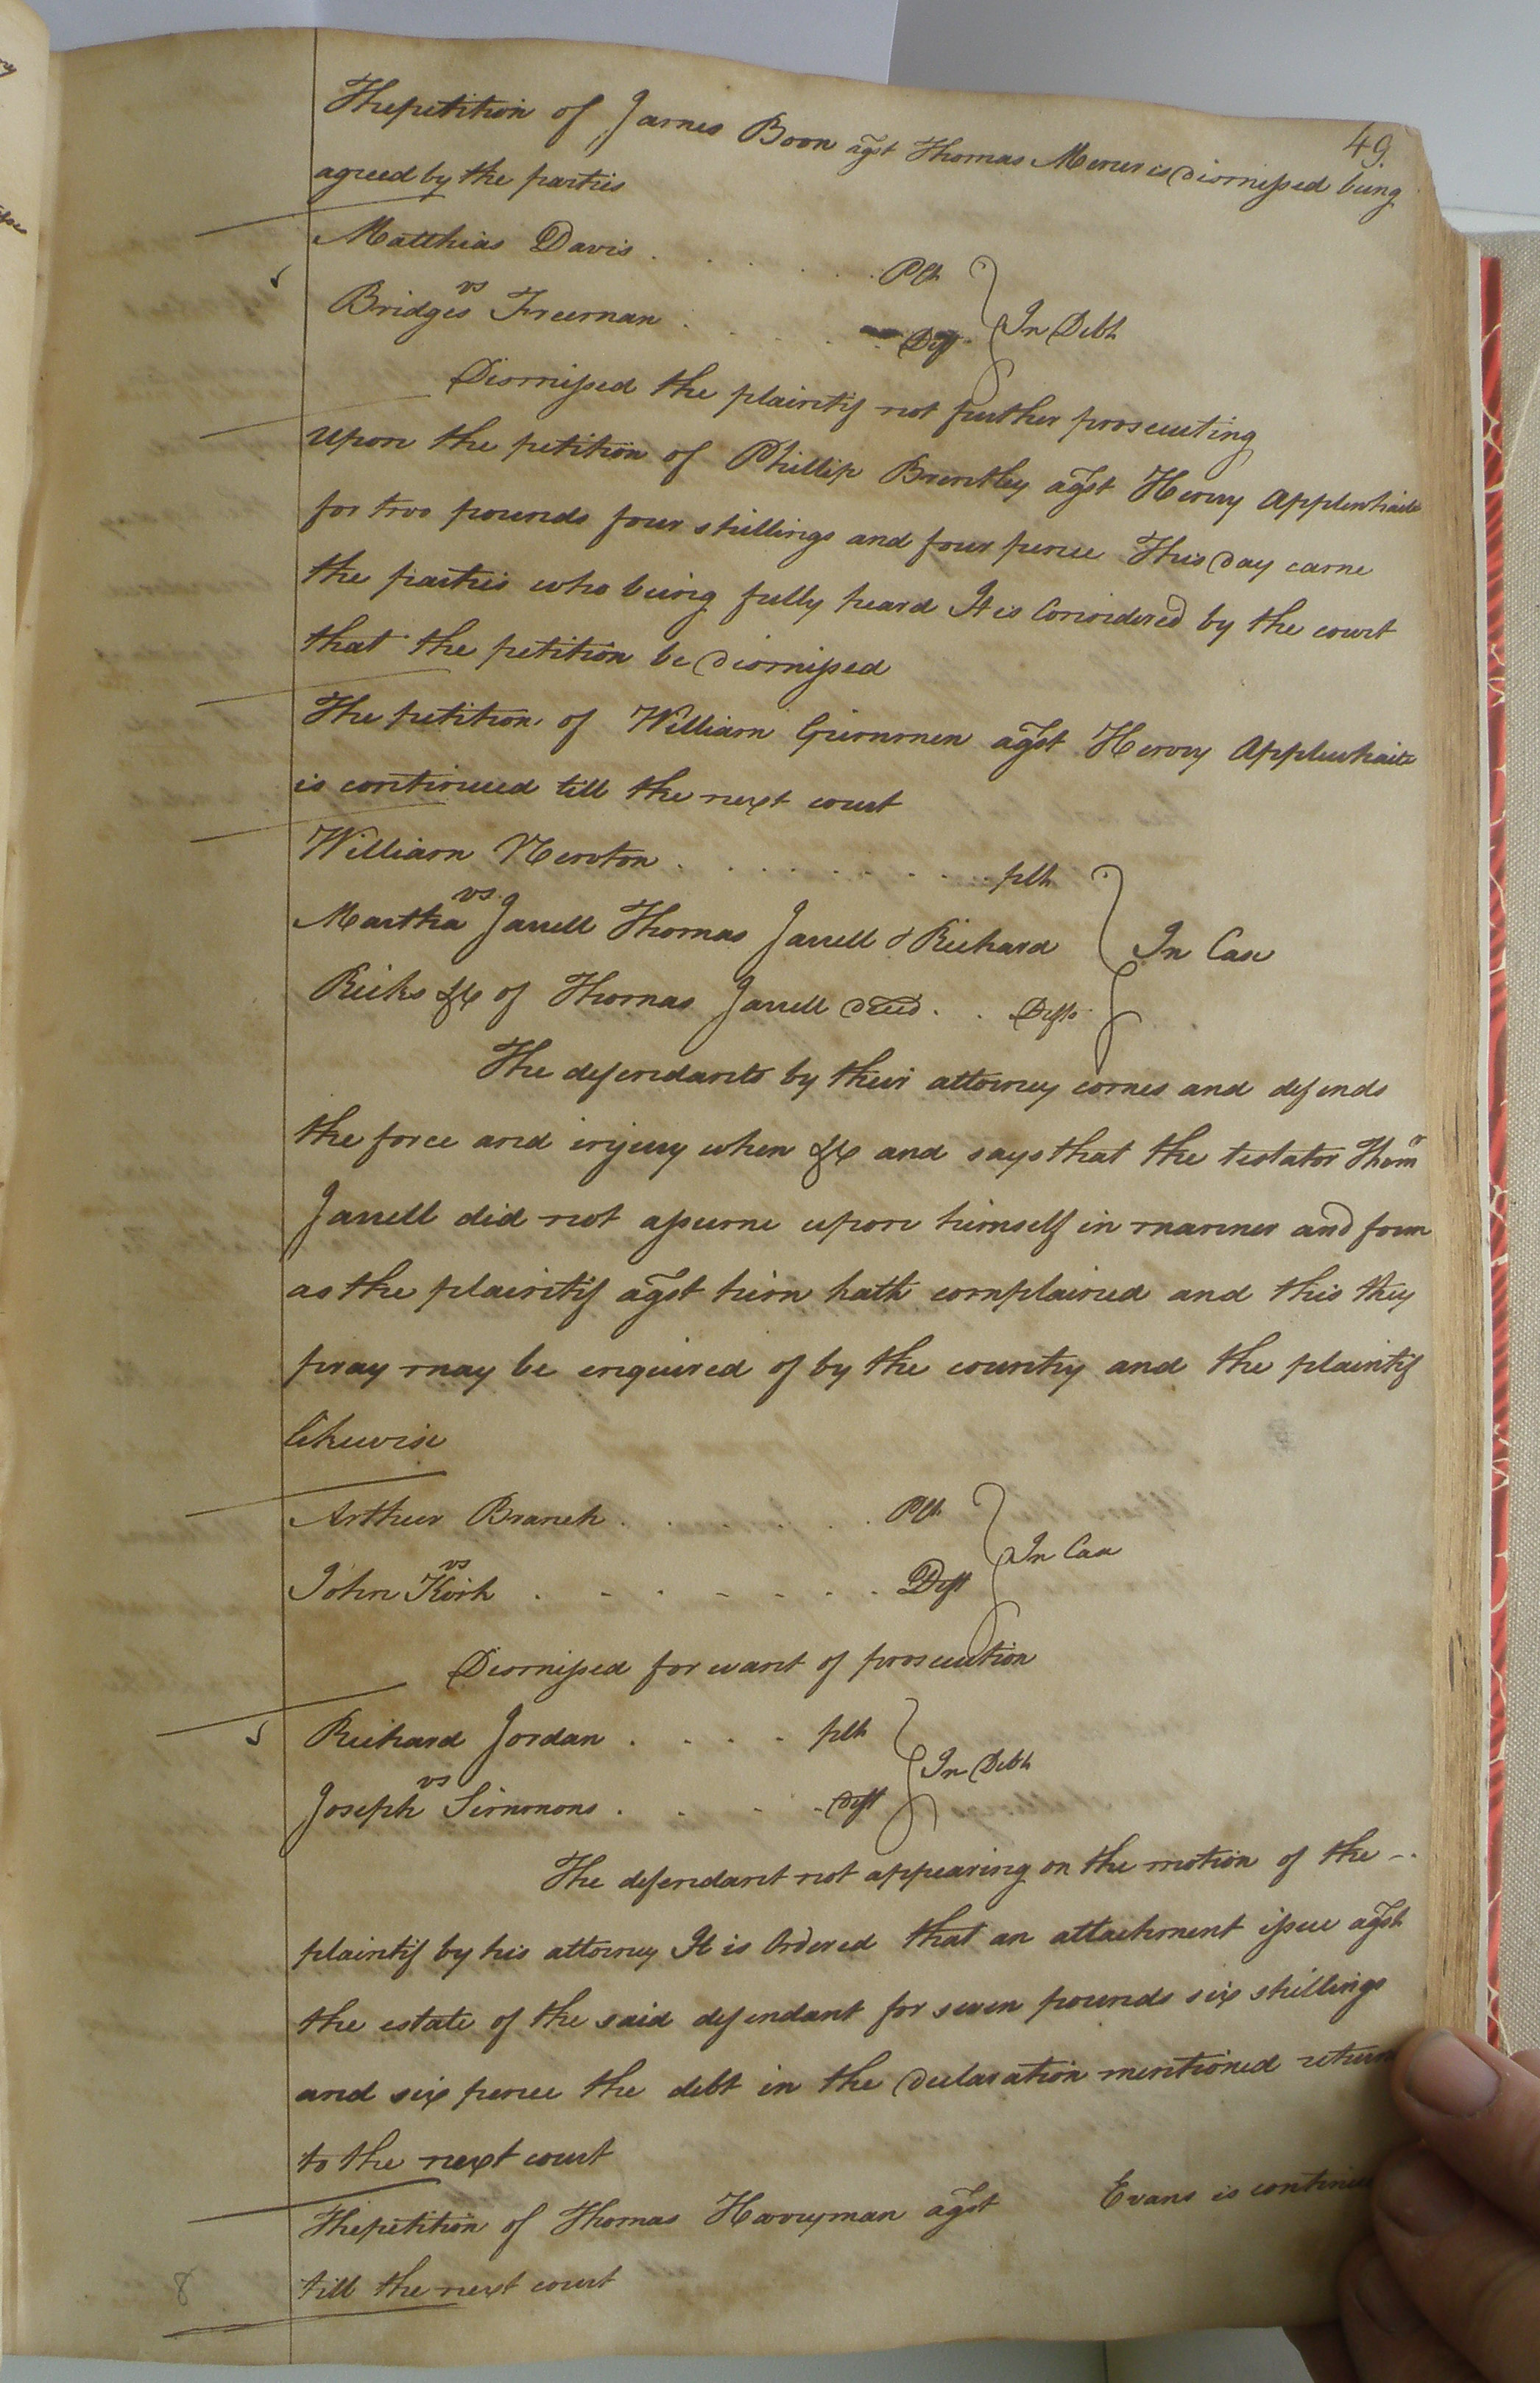 49.
The petition of James Boon agst Thomas Mercer is Dismissed being
agreed by the parties
Matthias Davis . . . . . . Plt
vs
Bridges Freeman . . . . . Deft
In Debt
Dismissed the plaintif not further prosecuting
Upon the petition of Phillip Brentley agst Henry Applewhaite
for two pounds four shillings and four pence This Day came
the parties who being fully heard It is Considered by the court
that the petition be Dismissed
The petition of William agst Henry Applewhaite
is continued till the next court
William Newton . . . . . . . . plt
vs
Martha Jarrell Thomas Jarrell & Richard
In Case
Ricks &c of Thomas Jarrell decd . . Defts
The defendants by their attorney comes and defends
the force and injury when &c and says that the testator Thoms
Jarrell did not assume upon himself in manner and form
as the plaintif agst him hath complained and this they
pray may be enquired of by the country and the plaintif
likewise
Arthur Branch . . . . . . Plt
vs
John Kirk . . . . . . . Deft
In Case
Dismissed for want of prosecution
Richard Jordan . . . . plt
vs
Joseph Simmons . . . . Deft
In Debt
The defendant not appearing on the motion of the
plaintif by his attorney It is Ordered that an attachment issue agst
the estate of the said defendant for seven pounds six shillings
and six pence the debt in the Declaration mentioned return
to the next court
The petition of Thomas Harryman agst Evans is continue
till the next court
8